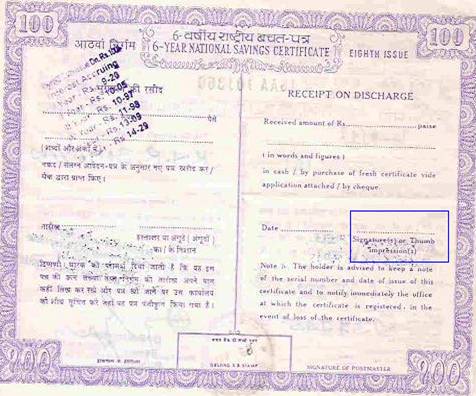 100
100
6-वर्षीय राष्ट्रीय बचत-पत्र
आठवां निर्गम
6-YEAR NATIONAL SAVINGS CERTIFICATE
EIGHTH ISSUE
Accruing
9-20
10-05
10-97
11-98
Rs. 13-09
Rs. 14-29
की रसीद
RECEIPT ON DISCHARGE
पैसे
Received amount of Rs. paise
(शब्दों और अंकों में)
( in words and figures )
नकद / संलग्न आवेदन-पत्र के अनुसार नए पत्र खरीद कर /
in cash / by purchase of fresh certificate vide
चैक द्वारा प्राप्त किए।
application attached / by cheque.
तारीख
Date
हस्ताक्षर या अंगूठे (अंगूठों)
का/के निशान
Signature(s) or Thumb
impression(s)
टिप्पणी: धारक को परामर्श दिया जाता है कि वह इस
Note :- The holder is advised to keep a note
of the serial number and date of issue of this
certificate and to notify immediately the office
at which the certificate is registered, in
को शीघ्र सूचित करें जहां वह पत्र पंजीकृत किया गया है।
the event of loss of the certificate.
100
100
OBLONG S B STAMP
SIGNATURE OF POSTMASTER